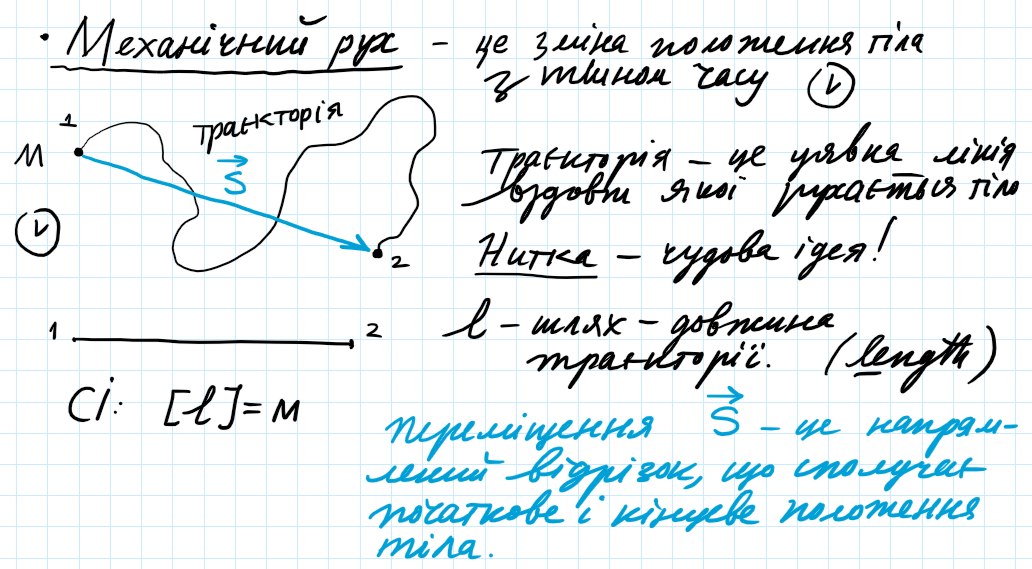 • Механічний рух – це зміна положення тіла
з плином часу V
1
траєкторія
М
S
Траєкторія – це уявна лінія
вздовж якої рухається тіло
V
2
Нитка – чудова ідея!
1
2
l – шлях – довжина
траєкторії. (length)
СІ: [l] = м
Переміщення S – це напрям-
лений відрізок, що сполучає
початкове і кінцеве положення
тіла.